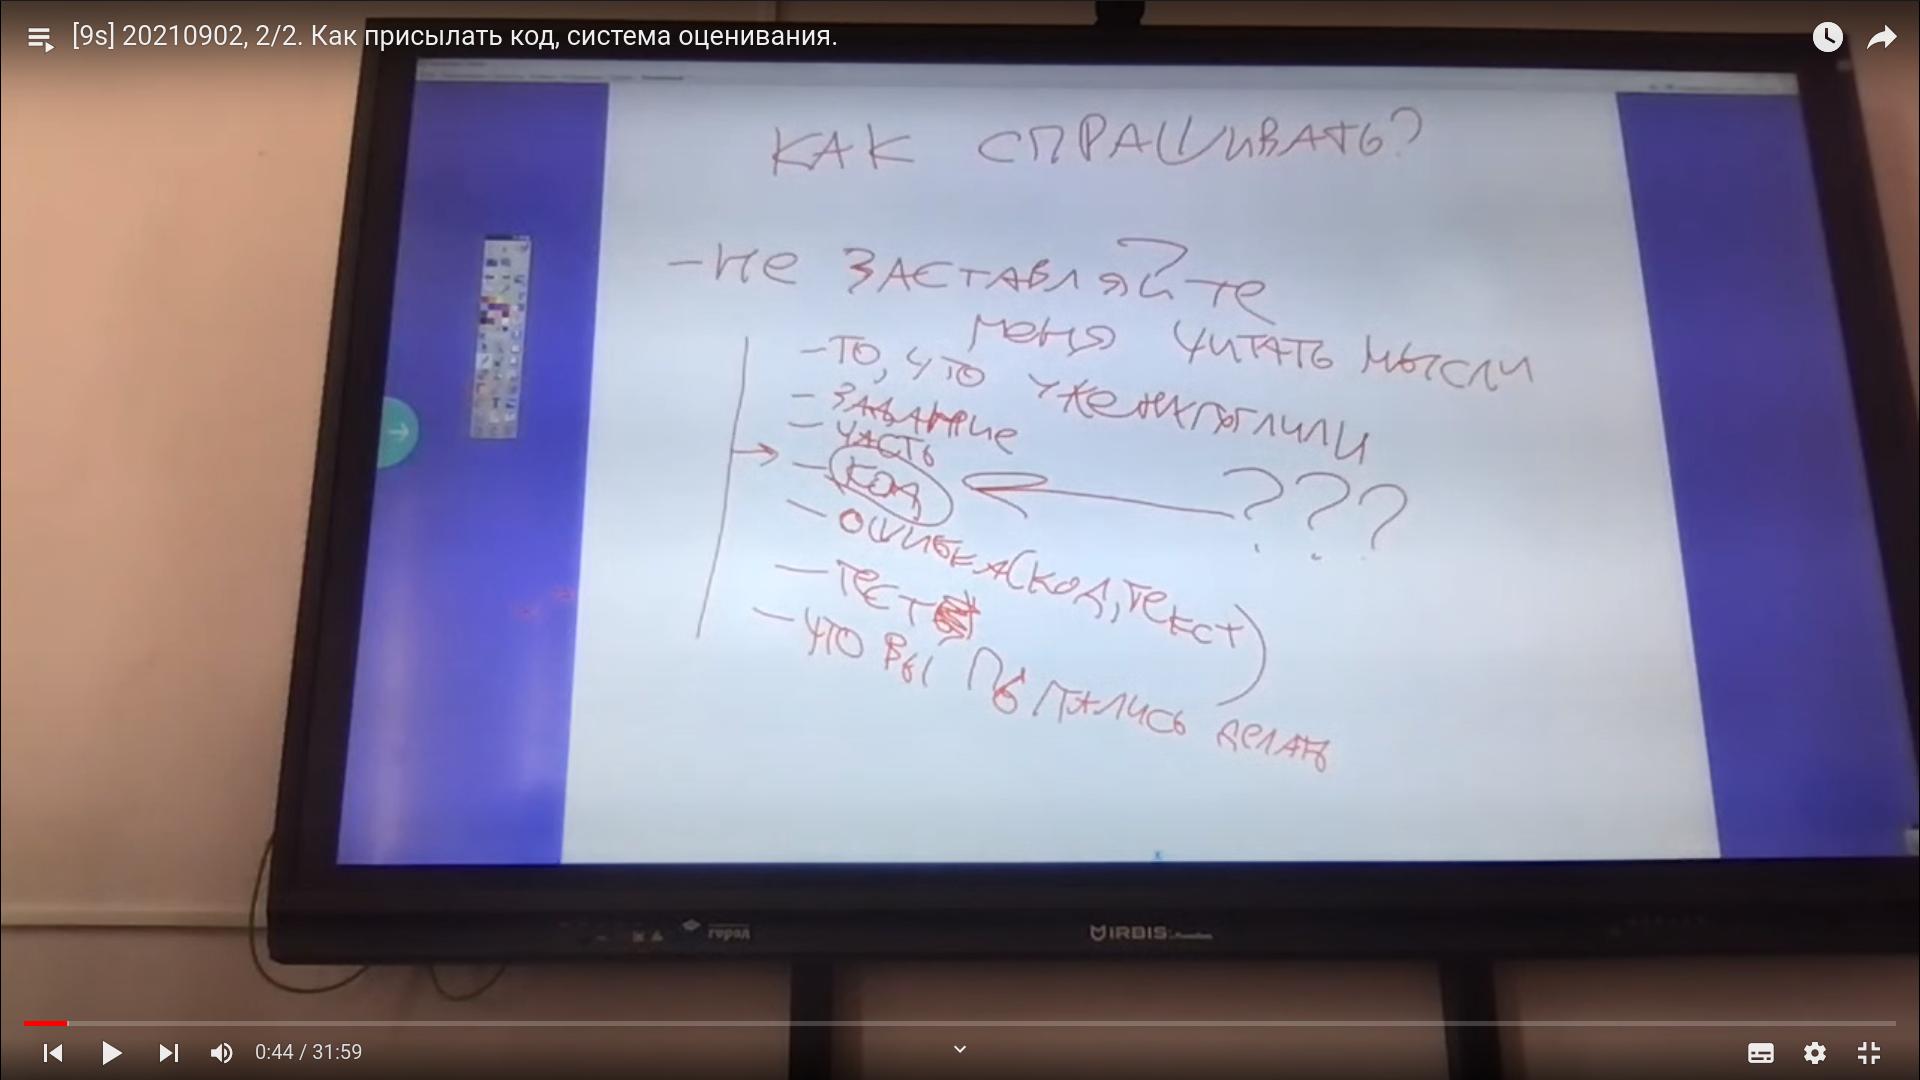 [9s] 20210902, 2/2. Как присылать код, система оценивания.
КАК СПРАШИВАТЬ?
- Не ЗАСТАВЛЯЙТе
меня ЧИТАТЬ МЫСЛИ
- ТО, ЧТО УЖе НАГУГЛИЛИ
- ЗАДАНИе
- ЧАСТЬ
- КОД
???
- ОШИБКА (КОД, ТеКСТ)
- ТеСТ
- ЧТО ВЫ ПЫТАЛИСЬ ДеЛАТЬ
город
IRBIS
0:44 / 31:59